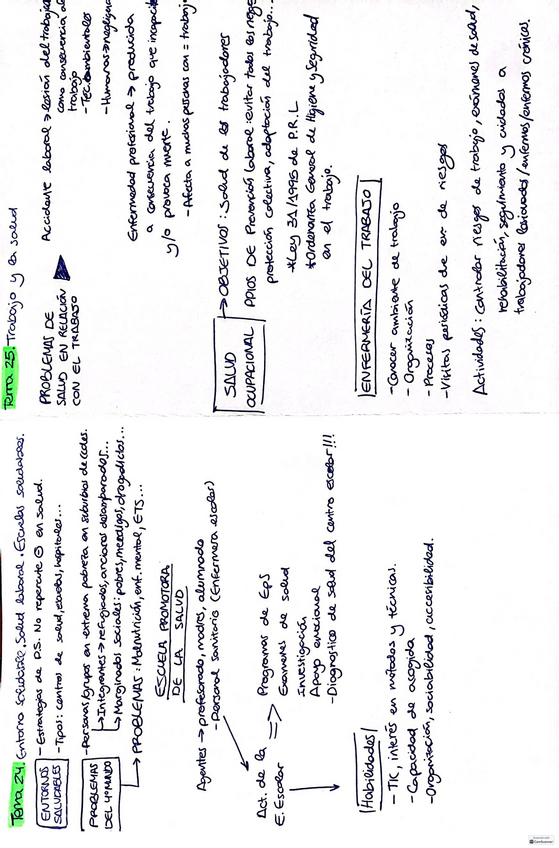 Tema 24. Entorno saludable. Salud laboral. Escuelas saludables.
ENTORNOS
SALUDABLES
- Estrategias de P.S. No repercute ⊖ en salud.
- Tipos: centros de salud, escuelas, hospitales...
PROBLEMAS
DEL 4º MUNDO
- Personas/grupos en extrema pobreza en suburbios de
↳ Integrantes → refugiados, ancianos desamparados...
↳ Marginados sociales: pobres, mendigos, drogadictos...
→ PROBLEMAS: Malnutrición, enf. mental, ETS...
ESCUELA PROMOTORA
DE LA SALUD
Agentes → profesorado, madres, alumnado
- Personal sanitario (Enfermera escolar)
Act. de la
E. Escolar
=> Programas de EpS
Exámenes de salud
Investigación
Apoyo emocional
- Diagnóstico de salud del centro escolar!!!
Habilidades
- TIC, interés en métodos y técnicas.
- Capacidad de acogida
- Organización, sociabilidad, accesibilidad.
Tema 25. Trabajo y la salud
PROBLEMAS DE
SALUD EN RELACIÓN
CON EL TRABAJO
Accidente laboral → lesión del trabajador
como consecuencia
trabajo
- Tec. ambientales
- Humanas →
Enfermedad profesional → producida
a consecuencia del trabajo que incapacita
y/o provoca muerte.
- Afecta a muchas personas con = trabajo
SALUD
OCUPACIONAL
→ OBJETIVOS: Salud de los trabajadores
de Prevención Laboral: evitar todos los riesgos
protección colectiva, adaptación del trabajo...
* Ley 31/1995 de P.R.L
* Ordenanza General de Higiene y Seguridad
en el trabajo.
ENFERMERÍA DEL TRABAJO
- Conocer ambiente de trabajo
- Organización
- Procesos
- Visitas periódicas de ev. de riesgos
Actividades: controlar riesgos de trabajo, exámenes de salud,
rehabilitación, seguimiento y cuidados a
trabajadores lesionados/enfermos/enfermos crónicos.
CamScanner